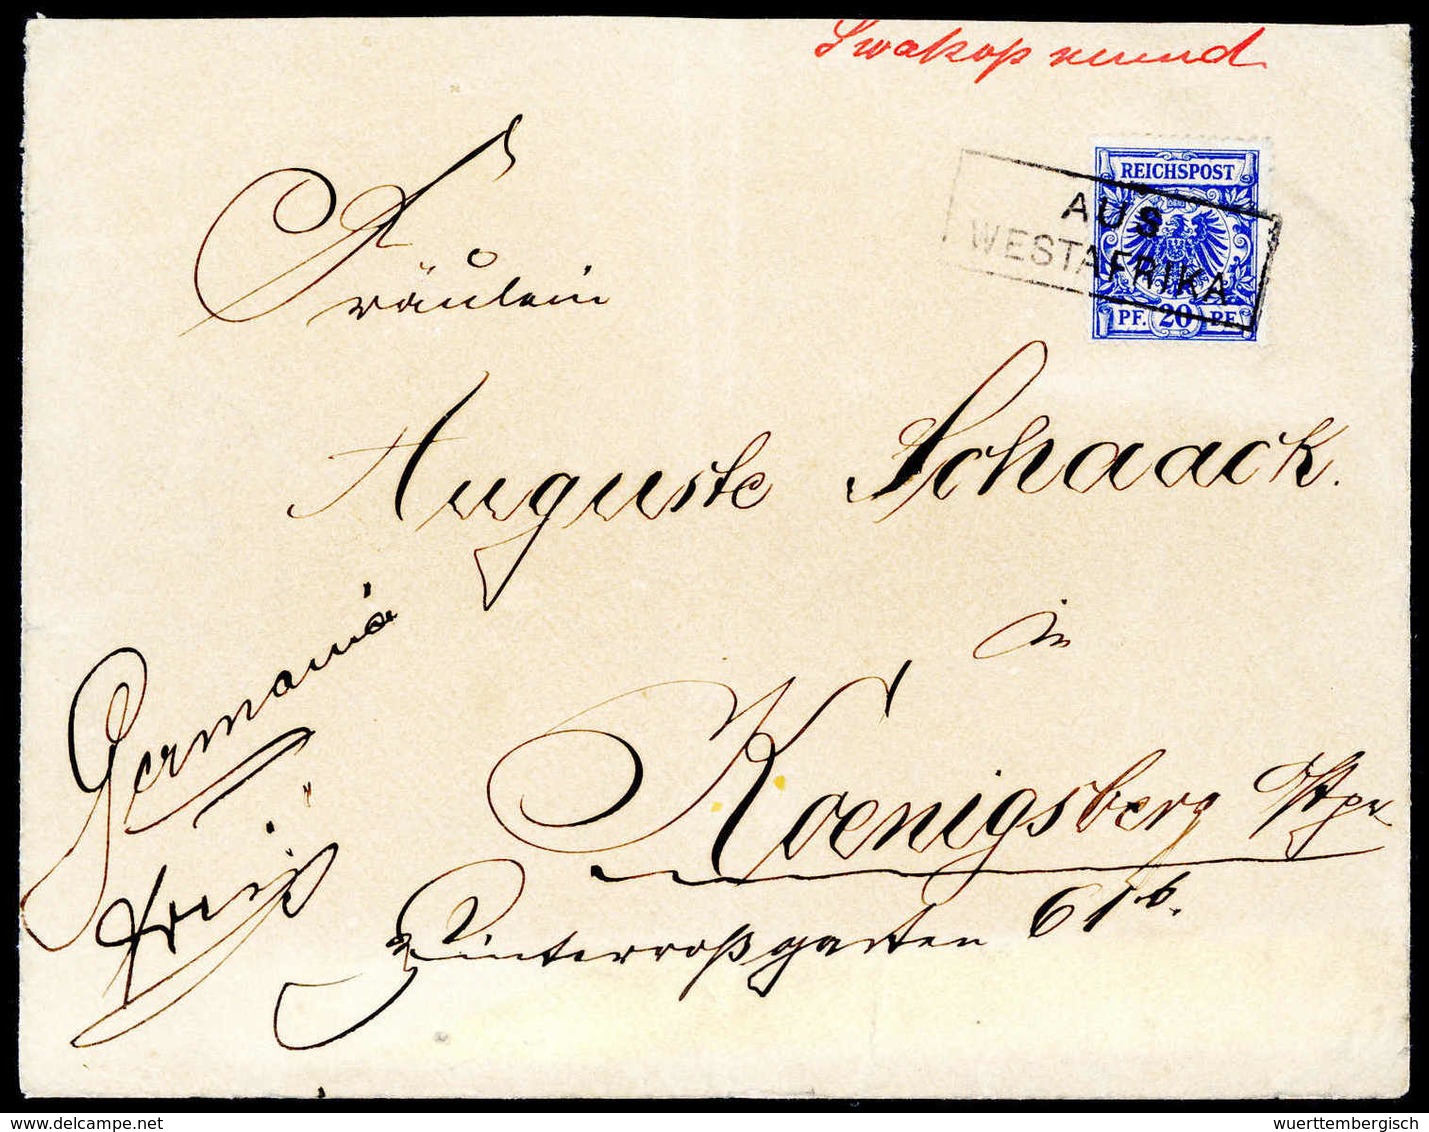 Swakopmund
REICHSPOST
AUS
WESTAFRIKA
PF. 20 PF.
Fräulein
Auguste Schaack.
in
Germania
Koenigsberg
Hinterroßgarten 61b.
www.delcampe.net
wuerttembergisch